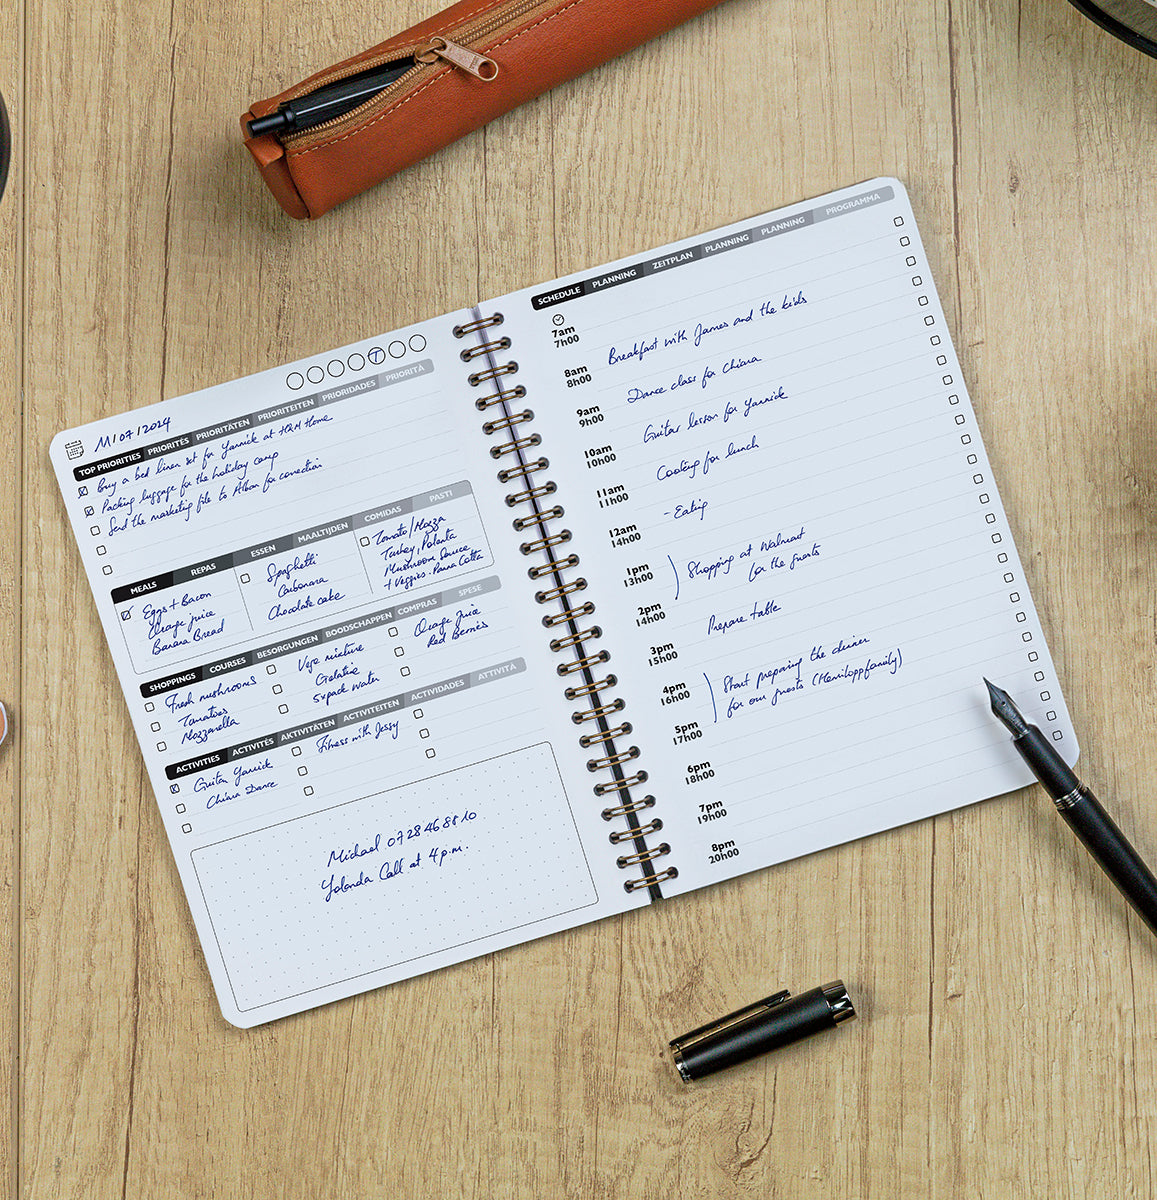 T
11/07/2024
TOP PRIORITIES PRIORITÉS PRIORITÄTEN PRIORITEITEN PRIORIDADES PRIORITÀ
Buy a bed linen set for Yannick at H&M Home
Packing luggage for the holiday camp
Send the marketing file to Alban for correction
MEALS REPAS ESSEN MAALTIJDEN COMIDAS PASTI
Eggs + Bacon
Orange juice
Banana Bread
Spaghetti
Carbonara
Chocolate cake
Tomato/Mozza
Turkey, Polenta
Mushroom Sauce
+ Veggies - Panna Cotta
SHOPPINGS COURSES BESORGUNGEN BOODSCHAPPEN COMPRAS SPESE
Fresh mushrooms
Tomatoes
Mozzarella
Vege mixture
Gelatine
5xpack water
Orange Juice
Red Berries
ACTIVITIES ACTIVITÉS AKTIVITÄTEN ACTIVITEITEN ACTIVIDADES ATTIVITÀ
Guitar Yannick
Chiara Dance
Fitness with Jessy
Michael 0728468810
Yolanda Call at 4 p.m.
SCHEDULE PLANNING ZEITPLAN PLANNING PLANNING PROGRAMMA
7am
7h00
8am Breakfast with James and the kids
8h00
9am Dance class for Chiara
9h00
10am Guitar lesson for Yannick
10h00
11am Cooking for lunch
11h00
12am - Eating
14h00
1pm Shopping at Walmart
13h00 for the guests
2pm
14h00
3pm Prepare table
15h00
4pm Start preparing the dinner
16h00 for our guests (Hemiloppfamily)
5pm
17h00
6pm
18h00
7pm
19h00
8pm
20h00